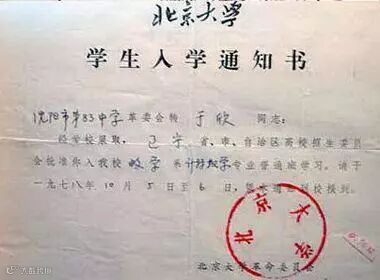 北京大学
学生入学通知书
沈阳市第83中学革委会转 于欣 同志：
经学校录取，辽宁省、市、自治区高校招生委员
会批准你入我校数学系计算数学专业普通班学习。请于
一九七八年10月5日至6日，凭本通知到校报到。
北京大学
北京大学革命委员会